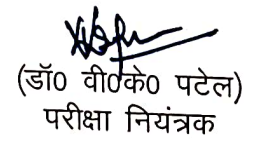 (डॉ0 वी0के0 पटेल)
परीक्षा नियंत्रक